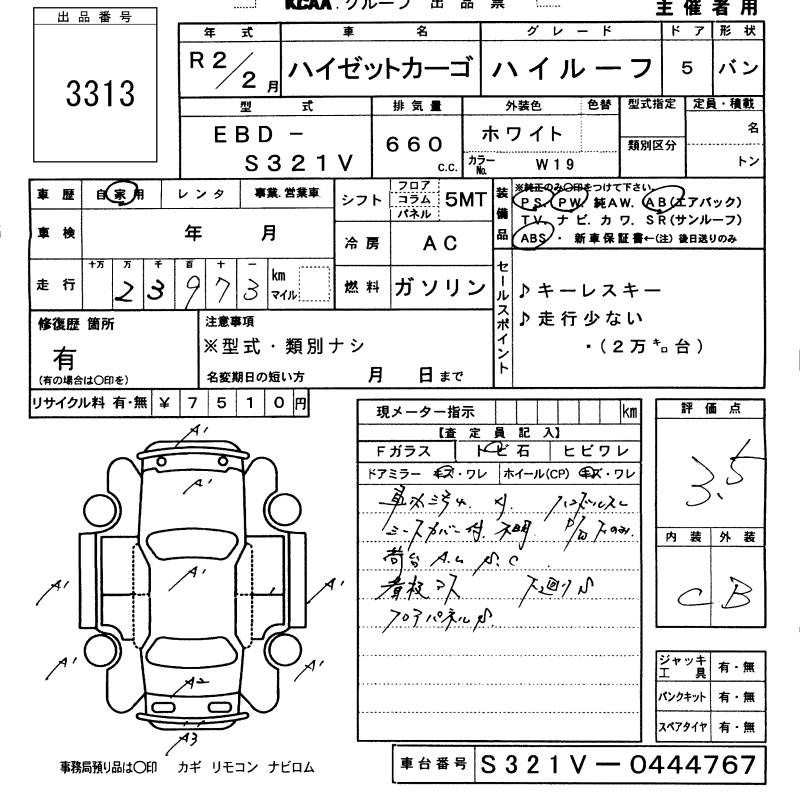 KCAA.グループ 出品票
主催者用
出品番号
3313
年式 車名 グレード ドア 形状
R2/2月 ハイゼットカーゴ ハイルーフ 5 バン
型式 排気量 外装色 色替 型式指定 定員・積載
EBD－ 660 ホワイト 名
S321V C.C. カラーNo. W19 類別区分 トン
車歴 自家用 レンタ 事業.営業車
車検 年 月
走行 十万 万 千 百 十 一
23973 km マイル
シフト フロア コラム パネル 5MT
冷房 AC
燃料 ガソリン
装備品
※純正のみ○印をつけて下さい。
PS. PW. 純AW. AB(エアバック)
TV. ナビ. カワ. SR(サンルーフ)
ABS・ 新車保証書←(注) 後日送りのみ
セールスポイント
♪キーレスキー
♪走行少ない
・(2万㌔台)
修復歴 箇所
有
(有の場合は○印を)
注意事項
※型式・類別ナシ
名変期日の短い方 月 日まで
リサイクル料 有・無 ¥ 7510円
現メーター指示 km
【査定員記入】
Fガラス トビ石 ヒビワレ
ドアミラー キズ・ワレ ホイール(CP) キズ・ワレ
荷台 A.U S.C
下廻りS
フロアパネルS
評価点
3.5
内装 外装
C B
ジャッキ工具 有・無
パンクキット 有・無
スペアタイヤ 有・無
A1
A1
A1
A1
A1
A1
A1
A2
A3
事務局預り品は○印 カギ リモコン ナビロム
車台番号 S321V－0444767